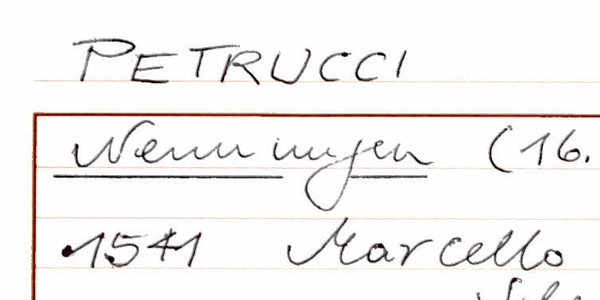 PETRUCCI
Nenningen (16.
•1541 Marcello